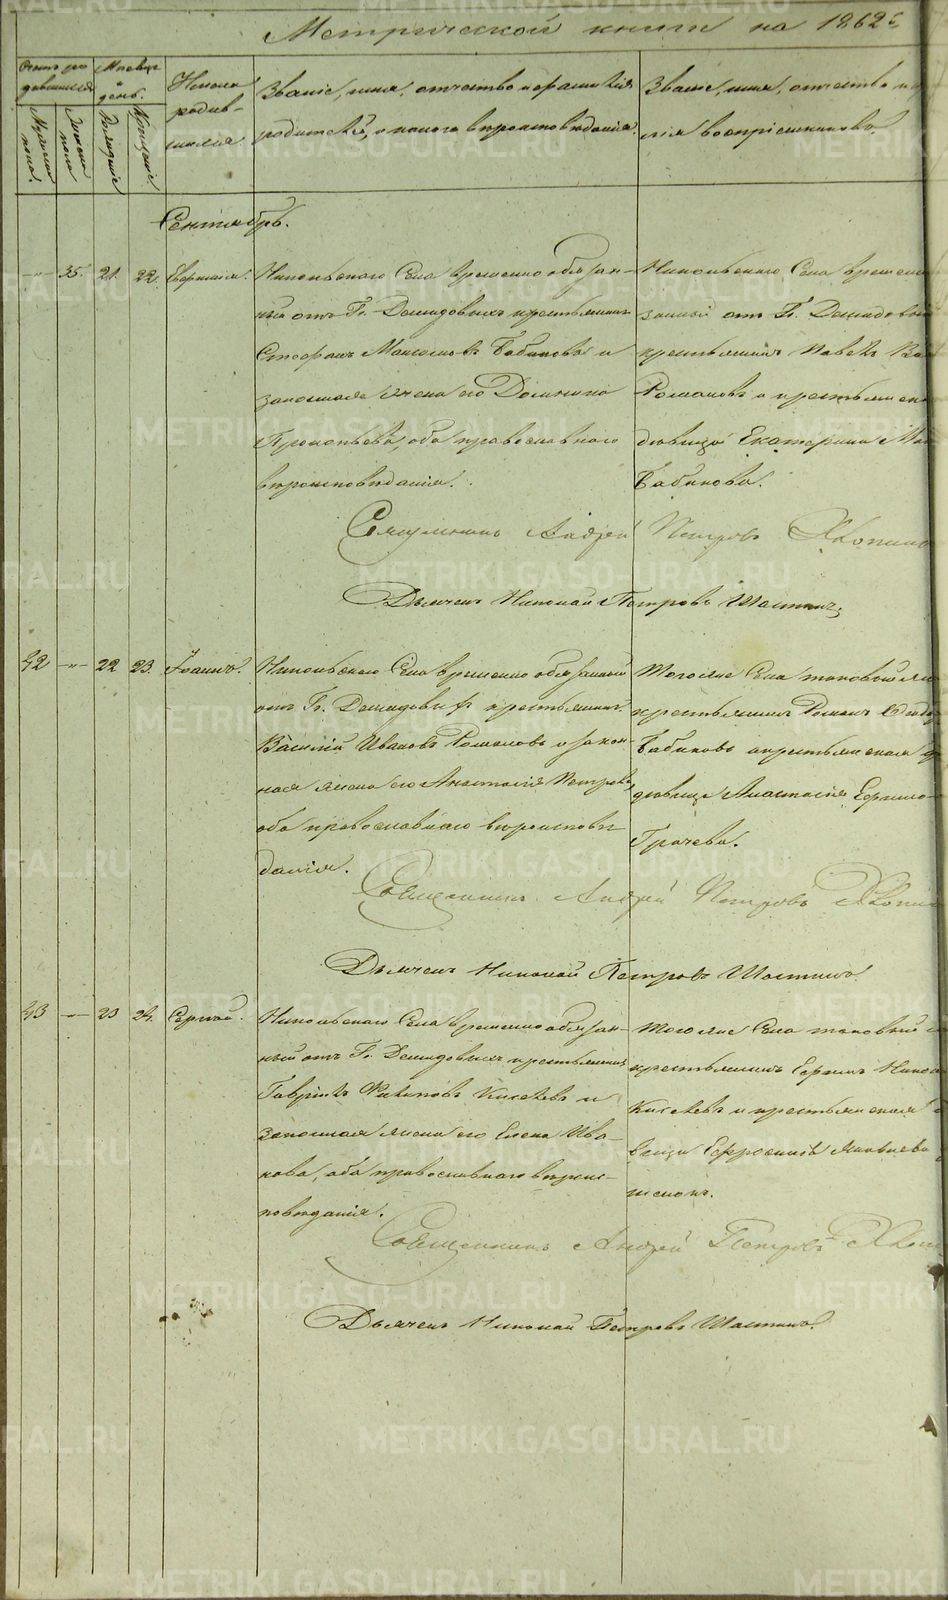 Метрической книги на 1862 г.
Счетъ родившихся
Мужеска пола.
Женска пола
Мѣсяцъ и день.
Рожденіе
Крещеніе.
Имена родившихся
Званіе, имя, отчество и фамилія
родителей, и какого вѣроисповѣданія.
Званіе, имя, отчество и
лія воспріемниковъ.
Сентябрь.
-"- 35. 21. 22.
Никольскаго Села временно обязан-
ный отъ Гг. Демидовыхъ крестьянинъ
Стефанъ Бабиновъ и
законная жена его Домника
Прокопьева, оба православнаго
вѣроисповѣданія.
Никольскаго Села временно
занный отъ Гг. Демидовых
крестьянинъ Павелъ
Романовъ и крестьянска
дѣвица Екатерина
Бабинова.
Священникъ Андрей Петровъ
Дьячекъ Николай Петровъ
42 -"- 22 23. Іоаннъ.
Никольскаго Села временно обязанный
отъ Гг. Демидовыхъ крестьянинъ
Василій Ивановъ Романовъ и закон-
ная жена его Анастасія Петрова,
оба православнаго вѣроисповѣ-
данія.
Того же Села таковый же
крестьянинъ Романъ
Бабиновъ и крестьянская
дѣвица Анастасія
Грачева.
Священникъ Андрей Петровъ
Дьячекъ Николай Петровъ
43 -"- 23 24. Сергій.
Никольскаго Села временно обязан-
ный отъ Гг. Демидовыхъ крестьянинъ
Гавріилъ Филиповъ Киселевъ и
законная жена его Елена Ива-
нова, оба православнаго вѣроис-
повѣданія.
Того же Села таковый
крестьянинъ
Киселевъ и крестьянская
вица Ефросинія Яковлева
Священникъ Андрей Петровъ
Дьячекъ Николай Петровъ
METRIKI.GASO-URAL.RU